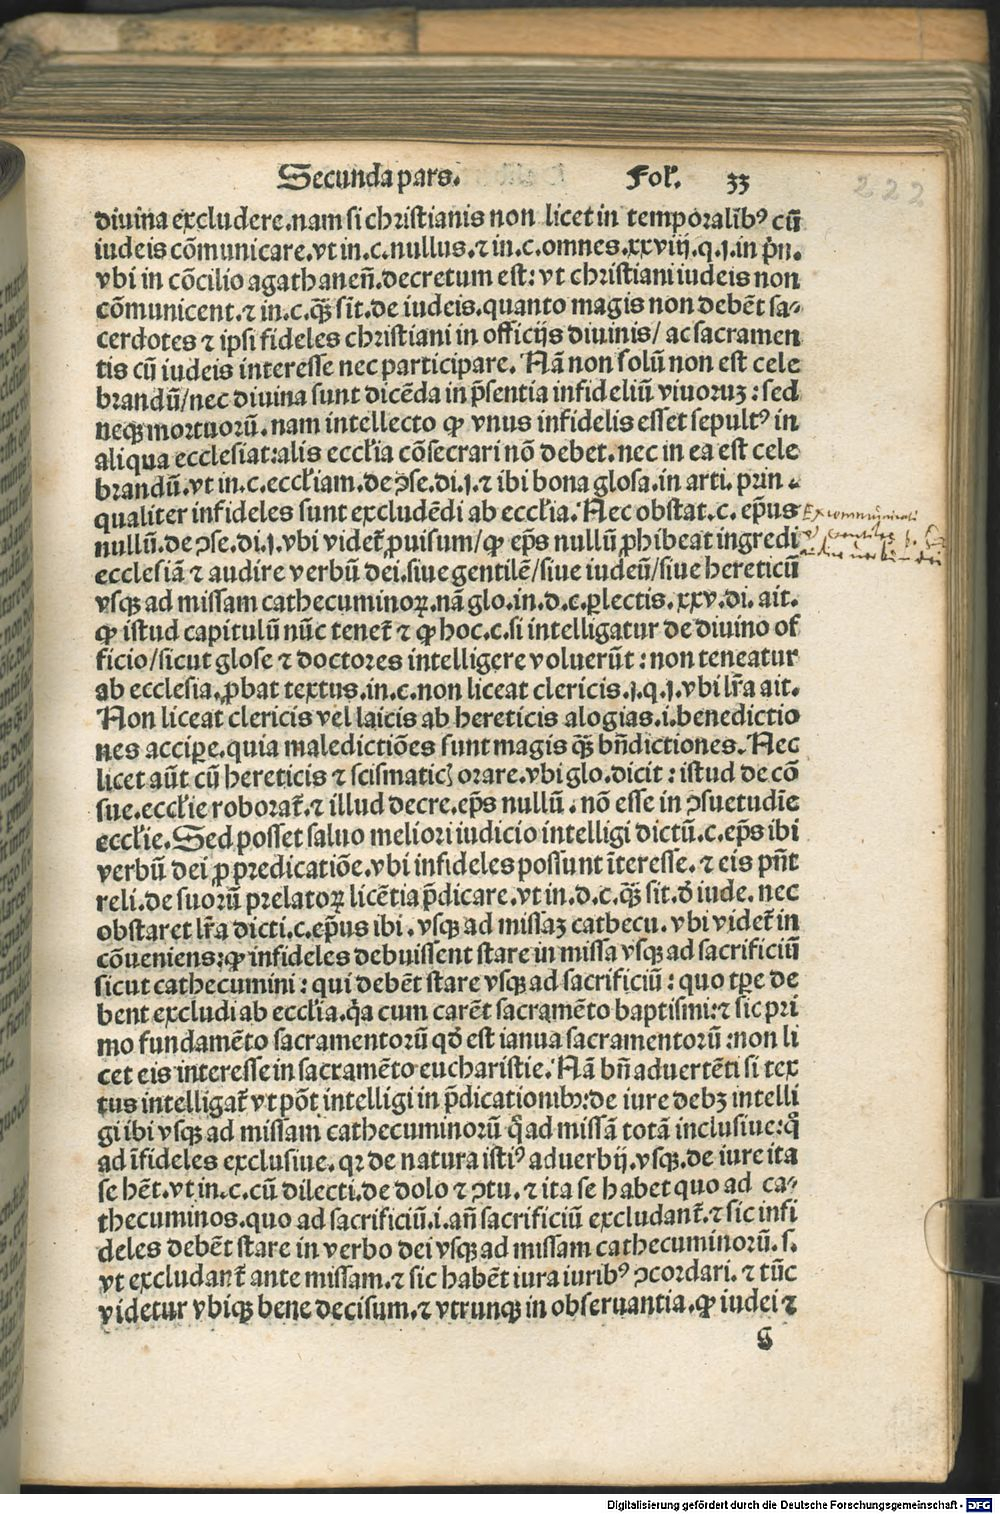 Secunda pars. Fol. 33
222
diuina excludere.nam si christianis non licet in temporalibꝰ cū
iudeis cōmunicare.vt in.c.nullus.⁊ in.c.omnes.xxviij.q.j.in p̄n.
vbi in cōcilio agathaneñ.decretum est: vt christiani iudeis non
cōmunicent.⁊ in.c.qͣꝫ sit.de iudeis.quanto magis non debēt sa-
cerdotes ⁊ ipsi fideles christiani in officijs diuinis/ ac sacramen
tis cū iudeis interesse nec participare. Nā non solū non est cele
brandū/nec diuina sunt dicēda in p̄sentia infideliū viuoruꝫ: sed
neqꝫ mortuorū.nam intellecto ꝙ vnus infidelis esset sepultꝰ in
aliqua ecclesia:talis eccl̄ia cōsecrari nō debet.nec in ea est cele
brandū.vt in.c.eccl̄iam.de ꝯse.di.j.⁊ ibi bona glosa.in arti. prin.
qualiter infideles sunt excludēdi ab eccl̄ia. Nec obstat.c. ep̄us
nullū.de ꝯse.di.j.vbi videt̄ ꝓuisum/ꝙ ep̄s nullū ꝓhibeat ingredi
Excommunicati
ecclesiā ⁊ audire verbū dei.siue gentilē/siue iudeū/siue hereticū
vsqꝫ ad missam cathecuminoꝝ.nā glo.in.d.c.ꝑlectis.xxv.di. ait.
ꝙ istud capitulū nūc tenet̄ ⁊ ꝙ hoc.c.si intelligatur de diuino of
ficio/sicut glose ⁊ doctores intelligere voluerūt: non teneatur
ab ecclesia.ꝓbat textus.in.c.non liceat clericis.j.q.j.vbi lr̄a ait.
Non liceat clericis vel laicis ab hereticis alogias.i.benedictio
nes accipe.quia maledictiōes sunt magis qͣꝫ bn̄dictiones. Nec
licet aūt cū hereticis ⁊ scismaticꝭ orare.vbi glo.dicit: istud de cō
sue.eccl̄ie roborat̄.⁊ illud decre.ep̄s nullū. nō esse in ꝯsuetudīe
eccl̄ie. Sed posset saluo meliori iudicio intelligi dictū.c.ep̄s ibi
verbū dei ꝓ predicatiōe.vbi infideles possunt īteresse.⁊ eis pn̄t
reli.de suorū prelatoꝝ licētia p̄dicare.vt in.d.c.qͣꝫ sit.d̄ iude. nec
obstaret lr̄a dicti.c.ep̄us ibi. vsqꝫ ad missaꝫ cathecu. vbi videt̄ in
cōueniens:ꝙ infideles debuissent stare in missa vsqꝫ ad sacrificiū
sicut cathecumini: qui debēt stare vsqꝫ ad sacrificiū: quo tꝑe de
bent excludi ab eccl̄ia.qͥa cum carēt sacramēto baptismi:⁊ sic pri
mo fundamēto sacramentorū qd̄ est ianua sacramentorū:non li
cet eis interesse in sacramēto eucharistie. Nā bn̄ aduertēti si tex
tus intelligat̄ vt pōt intelligi in p̄dicationibꝫ:de iure debꝫ intelli
gi ibi vsqꝫ ad missam cathecuminorū qͦ ad missā totā inclusiue:qͦ
ad īfideles exclusiue. qꝛ de natura istiꝰ aduerbij.vsqꝫ.de iure ita
se hēt.vt in.c.cū dilecti.de dolo ⁊ ꝯtu.⁊ ita se habet quo ad ca-
thecuminos.quo ad sacrificiū.i.añ sacrificiū excludant̄.⁊ sic infi
deles debēt stare in verbo dei vsqꝫ ad missam cathecuminorū. s.
vt excludant̄ ante missam.⁊ sic habēt iura iuribꝰ ꝯcordari.⁊ tūc
videtur vbiqꝫ bene decisum.⁊ vtrunqꝫ in obseruantia.ꝙ iudei ⁊
G
Digitalisierung gefördert durch die Deutsche Forschungsgemeinschaft - DFG